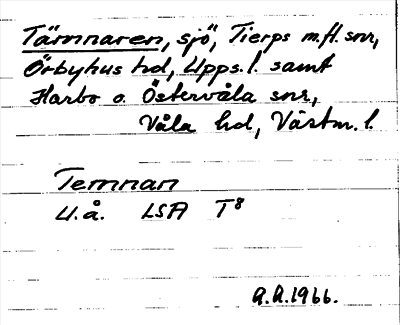 Tämnaren, sjö, Tierps m.fl. snr,
Örbyhus hd, Upps. l. samt
Harbo o. Östervåla snr,
Våla hd, Västm. l.
Temnan
U.å. LSA T8
A.A.1966.